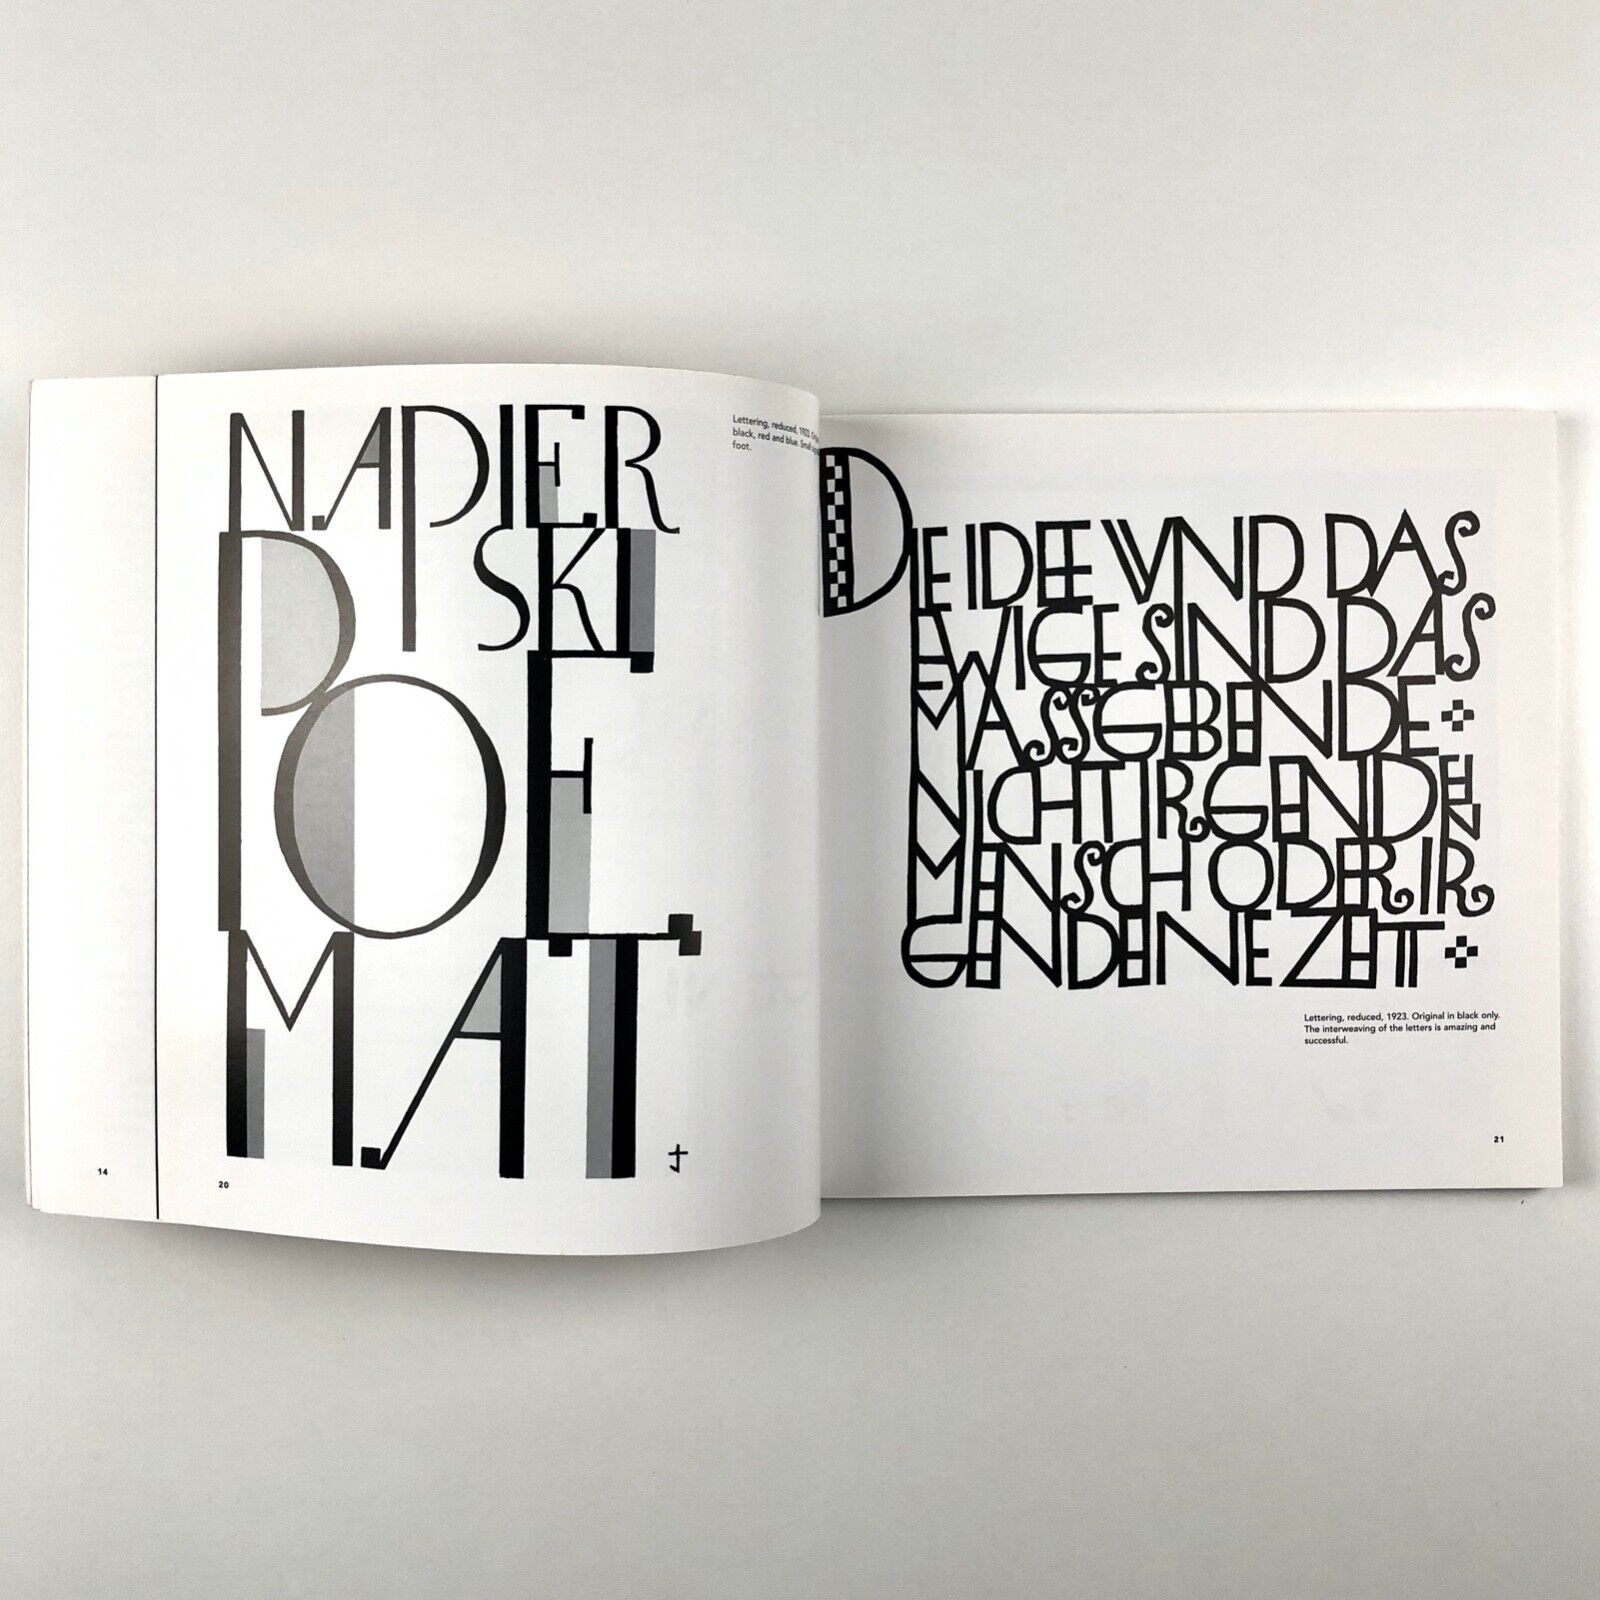 NAPIER
SKI
POE
MAT
Lettering, reduced, 1923.
black, red and blue. Small
foot.
14
20
DIE IDEE VND DAS
EWIGE SIND DAS
MASSGEBENDE
NICHT IRGENDEIN
MENSCH ODER IR
GENDEINE ZEIT
Lettering, reduced, 1923. Original in black only.
The interweaving of the letters is amazing and
successful.
21